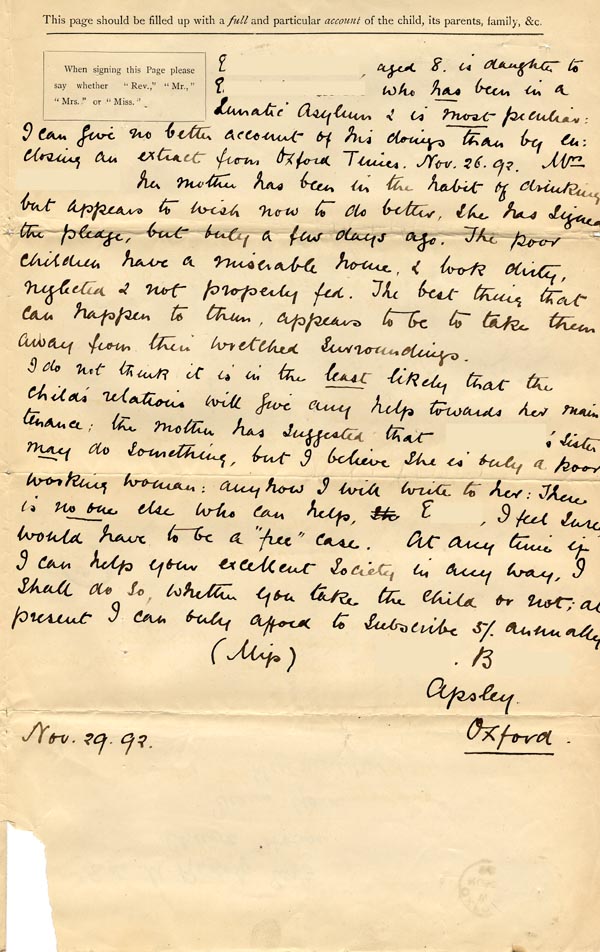 This page should be filled up with a full and particular account of the child, its parents, family, &c.
When signing this Page please
say whether "Rev.," "Mr.,"
"Mrs." or "Miss."
E , aged 8. is daughter to
E. who has been in a
Lunatic Asylum & is most peculiar:
I can give no better account of his doings than by en:
closing an extract from Oxford Times. Nov. 26. 92. Mrs
her mother has been in the habit of drinking
but appears to wish now to do better, she has signed
the pledge, but only a few days ago. The poor
children have a miserable home, & look dirty,
neglected & not properly fed. The best thing that
can happen to them, appears to be to take them
away from their wretched surroundings.
I do not think it is in the least likely that the
child's relations will give any help towards her main
tenance; the mother has suggested that 's sister
may do something, but I believe she is only a poor
working woman: anyhow I will write to her: There
is no one else who can help, E , I feel sure
would have to be a "free" case. At any time if
I can help your excellent Society in any way, I
shall do so, whether you take the child or not; at
present I can only afford to subscribe 5/. annually
(Miss) . B
Apsley.
Nov. 29. 92. Oxford.